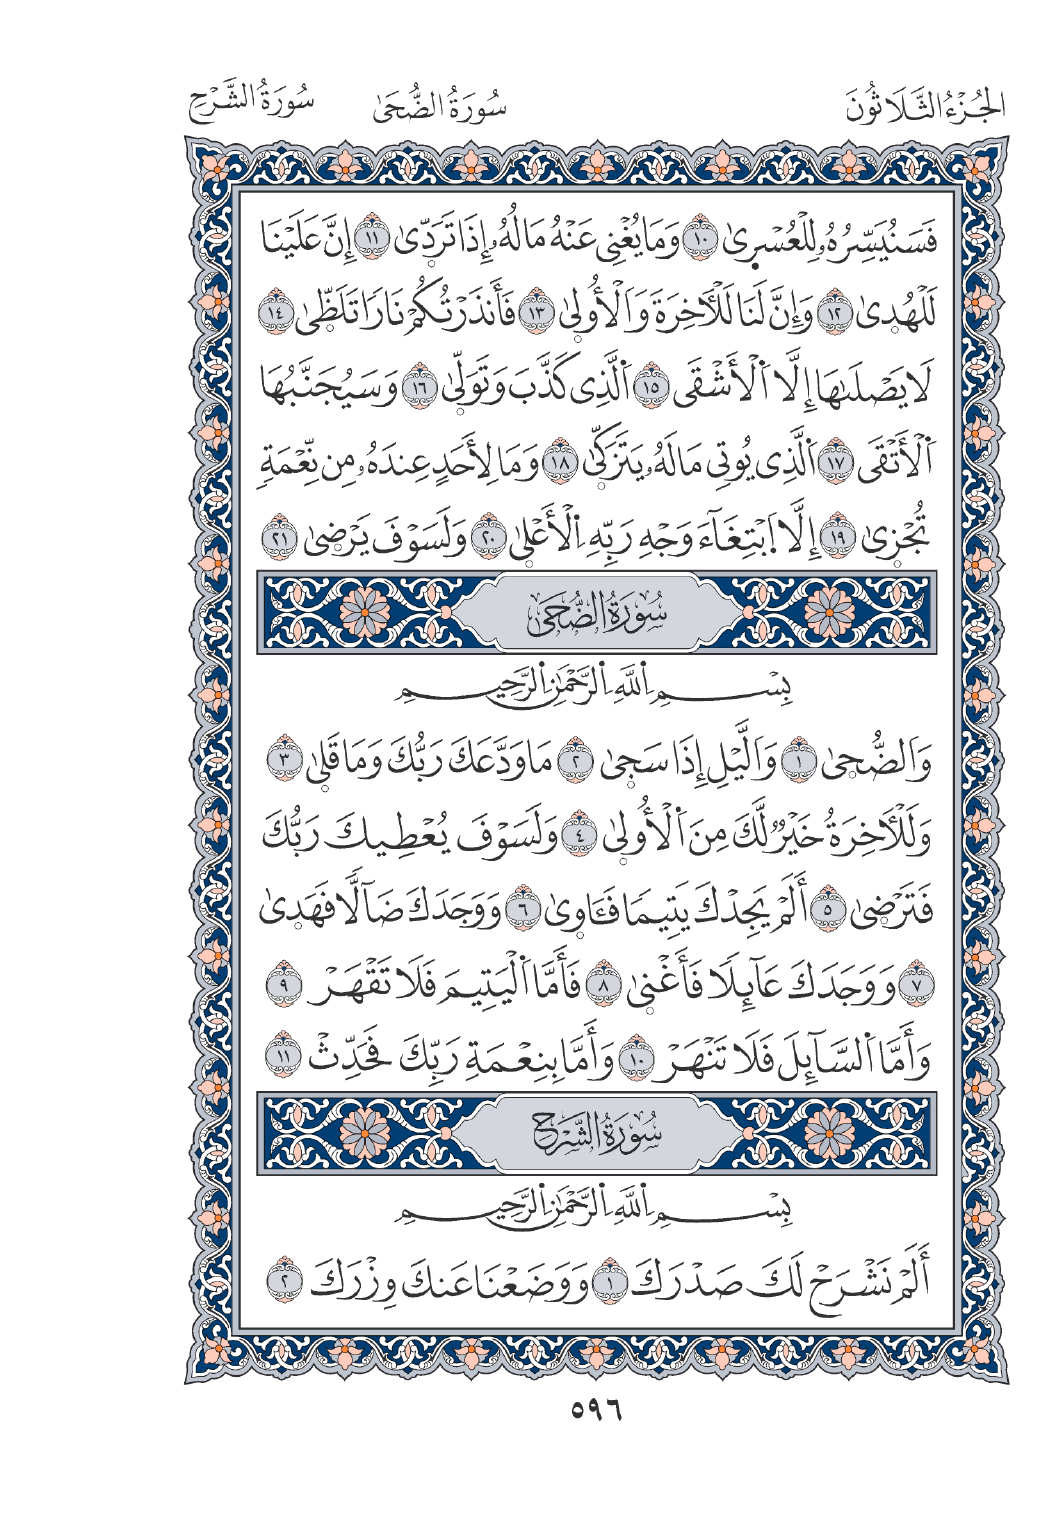 الجُزْءُ الثَّلَاثُونَ سُورَةُ الضُّحَىٰ سُورَةُ الشَّرْحِ
فَسَنُيَسِّرُهُۥ لِلْعُسْر۪ىٰ ١٠ وَمَا يُغْنِي عَنْهُ مَالُهُۥ إِذَا تَرَدّ۪ىٰ ١١ إِنَّ عَلَيْنَا
لَلْهُد۪ىٰ ١٢ وَإِنَّ لَنَا لَلْأٓخِرَةَ وَاَلْأُول۪ىٰ ١٣ فَأَنذَرْتُكُمْ نَارَا تَلَظّ۪ىٰ ١٤
لَا يَصْلَىٰهَا إِلَّا اَلْأَشْقَى ١٥ اَلَّذِى كَذَّبَ وَتَوَلّ۪ىٰ ١٦ وَسَيُجَنَّبُهَا
اَلْأَتْقَى ١٧ اَلَّذِى يُوتِى مَالَهُۥ يَتَزَكّ۪ىٰ ١٨ وَمَا لِأَحَدٍ عِندَهُۥ مِن نِّعْمَةٍ
تُجْز۪ىٰ ١٩ إِلَّا اَبْتِغَآءَ وَجْهِ رَبِّهِ اِلْأَعْل۪ىٰ ٢٠ وَلَسَوْفَ يَرْض۪ىٰ ٢١
سُورَةُ الضُّحَىٰ
بِسْمِ اِللَّهِ اِلرَّحْمَٰنِ اِلرَّحِيمِ
وَاَلضُّح۪ىٰ ١ وَاَلَّيْلِ إِذَا سَج۪ىٰ ٢ مَا وَدَّعَكَ رَبُّكَ وَمَا قَل۪ىٰ ٣
وَلَلْأٓخِرَةُ خَيْرٌ لَّكَ مِنَ اَلْأُول۪ىٰ ٤ وَلَسَوْفَ يُعْطِيكَ رَبُّكَ
فَتَرْض۪ىٰ ٥ أَلَمْ يَجِدْكَ يَتِيمَا فَـَٔاو۪ىٰ ٦ وَوَجَدَكَ ضَآلَّا فَهَد۪ىٰ
٧ وَوَجَدَكَ عَآئِلَا فَأَغْن۪ىٰ ٨ فَأَمَّا اَلْيَتِيمَ فَلَا تَقْهَرْ ٩
وَأَمَّا اَلسَّآئِلَ فَلَا تَنْهَرْ ١٠ وَأَمَّا بِنِعْمَةِ رَبِّكَ فَحَدِّثْ ١١
سُورَةُ الشَّرْحِ
بِسْمِ اِللَّهِ اِلرَّحْمَٰنِ اِلرَّحِيمِ
أَلَمْ نَشْرَحْ لَكَ صَدْرَكَ ١ وَوَضَعْنَا عَنكَ وِزْرَكَ ٢
٥٩٦